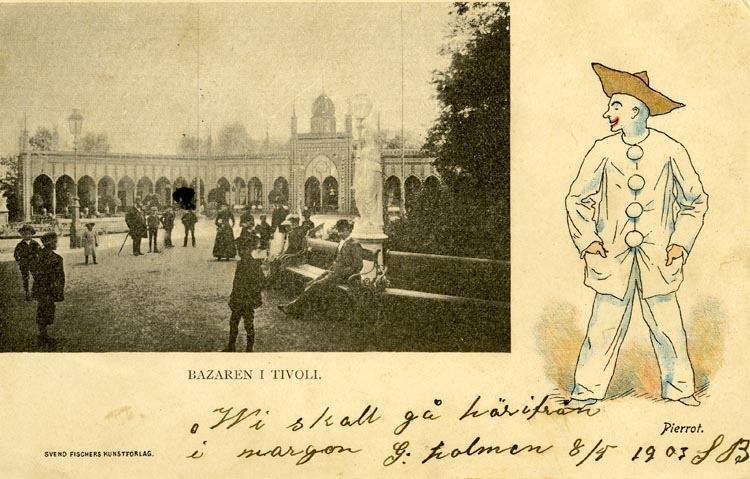 BAZAREN I TIVOLI.
Wi skall gå härifrån
i margon G. holmen 8/5 1903 S B
Pierrot.
SVEND FISCHERS KUNSTFORLAG.